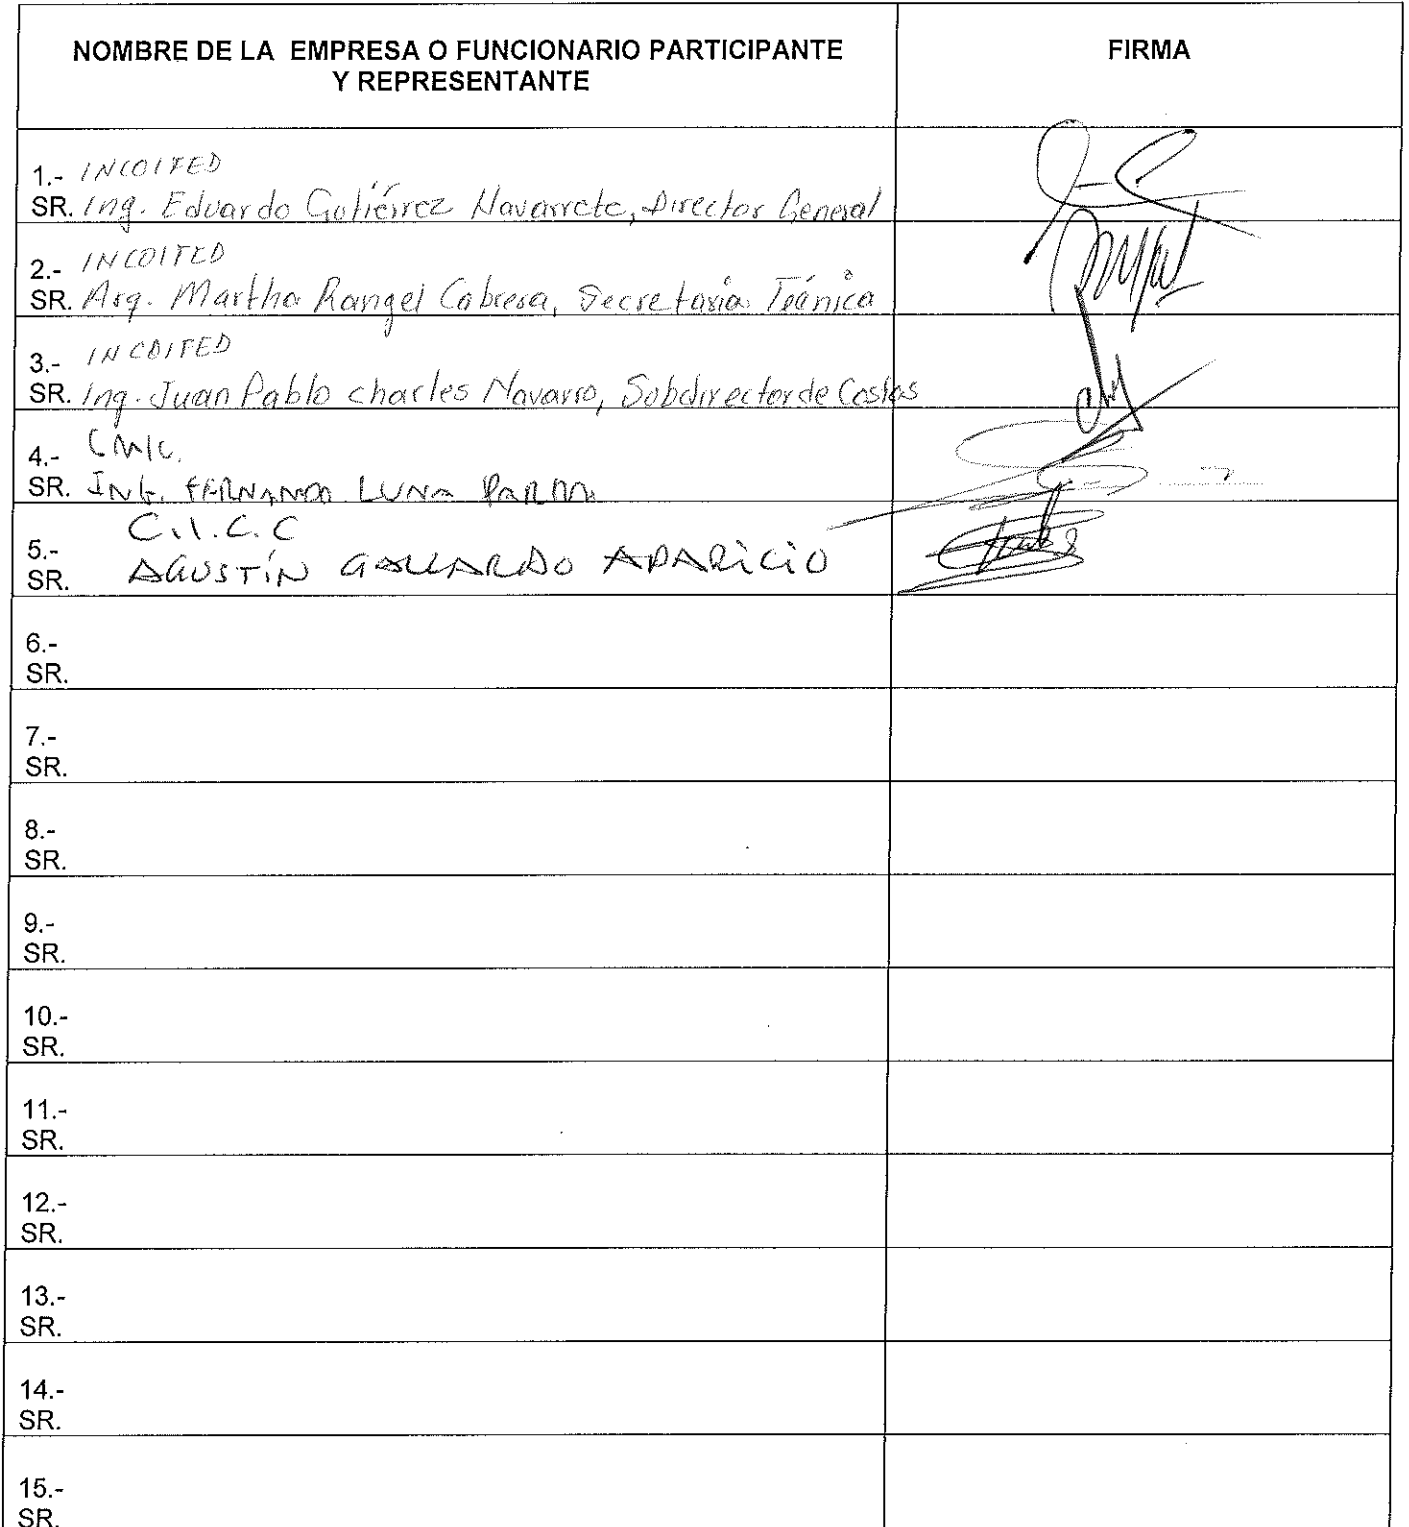 NOMBRE DE LA EMPRESA O FUNCIONARIO PARTICIPANTE
Y REPRESENTANTE
FIRMA
1.- INCOIFED
SR. Ing. Eduardo Gutiérrez Navarrete, Director General
2.- INCOIFED
SR. Arq. Martha Rangel Cabrera, Secretaria Técnica
3.- INCOIFED
SR. Ing. Juan Pablo Charles Navarro, Subdirector de Costos
4.- CMIC.
SR. ING. FERNANDO LUNA
5.- C.I.C.C
SR. AGUSTÍN GALLARDO APARICIO
6.-
SR.
7.-
SR.
8.-
SR.
9.-
SR.
10.-
SR.
11.-
SR.
12.-
SR.
13.-
SR.
14.-
SR.
15.-
SR.